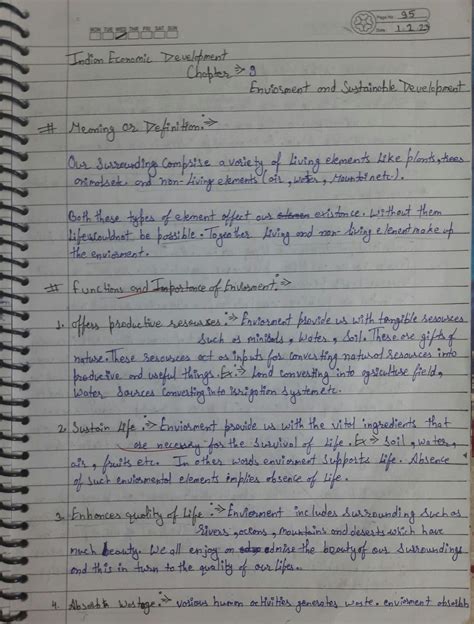 MON TUE WED THU FRI SAT SUN
Page No. 95
Date 1.2.23
Indian Economic Development
Chapter ⇒ 9
Enviorsment and Sustainable Development
# Meaning or Definition :⇒
Our Surrounding Comprise a variety of living elements like plants, trees
animals etc. and non-living elements (air, water, Mountain etc).
Both these types of element effect our existance. Without them
life would not be possible. Together living and non-living element make up
the enviorment.
# Functions and Importance of Enviorment :⇒
1. Offers productive resourses :⇒ Enviorment provide us with tangible resources
such as minirals, water, Soil. These are gifts of
nature. These resources act as inputs for converting natural resources into
productive and useful things. Ex :⇒ Land converting into agriculture field,
Water Sources Converting into irrigation system etc.
2. Sustain Life :⇒ Enviorment provide us with the vital ingredients that
are necessary for the Survival of Life. Ex ⇒ Soil, water,
air, fruits etc. In other words enviorment supports life. Absence
of such enviormental elements implies absence of Life.
3. Enhances quality of Life :⇒ Enviorment includes Surrounding such as
rivers, oceans, mountains and deserts which have
much beauty. We all enjoy an admire the beauty of our Surroundings
and this in turn to the quality of our lifes.
4. Absorb Wastage :⇒ various human activities generates waste. enviorment absorbs